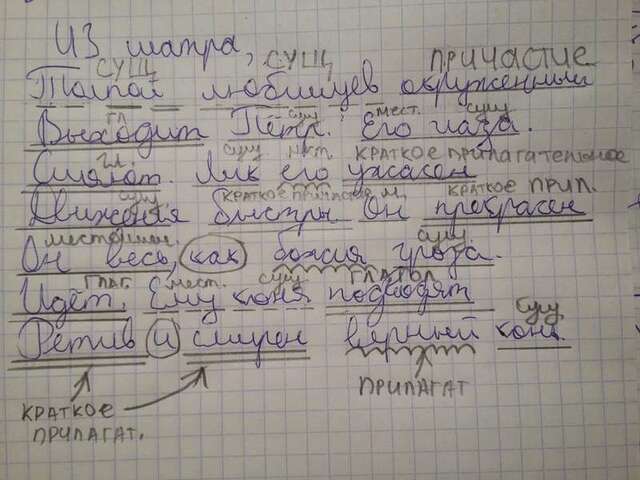 Из шатра,
СУЩ СУЩ ПРИЧАСТИЕ
Толпой любимцев окруженный
ГЛ сущ мест. сущ
Выходит Пётр. Его глаза.
гл. сущ. мест. КРАТКОЕ ПРИЛАГАТЕЛЬНОЕ
Сияют. Лик его ужасен
сущ. КРАТКОЕ ПРИЛАГ М. КРАТКОЕ ПРИЛ.
Движенья быстры Он прекрасен
местоимен. сущ
Он весь, как божия гроза.
ГЛАГ. мест. сущ ГЛАГОЛ
Идёт. Ему коня подводят
сущ
Ретив и смирен верный конь.
КРАТКОЕ ПРИЛАГАТ
ПРИЛАГАТ.